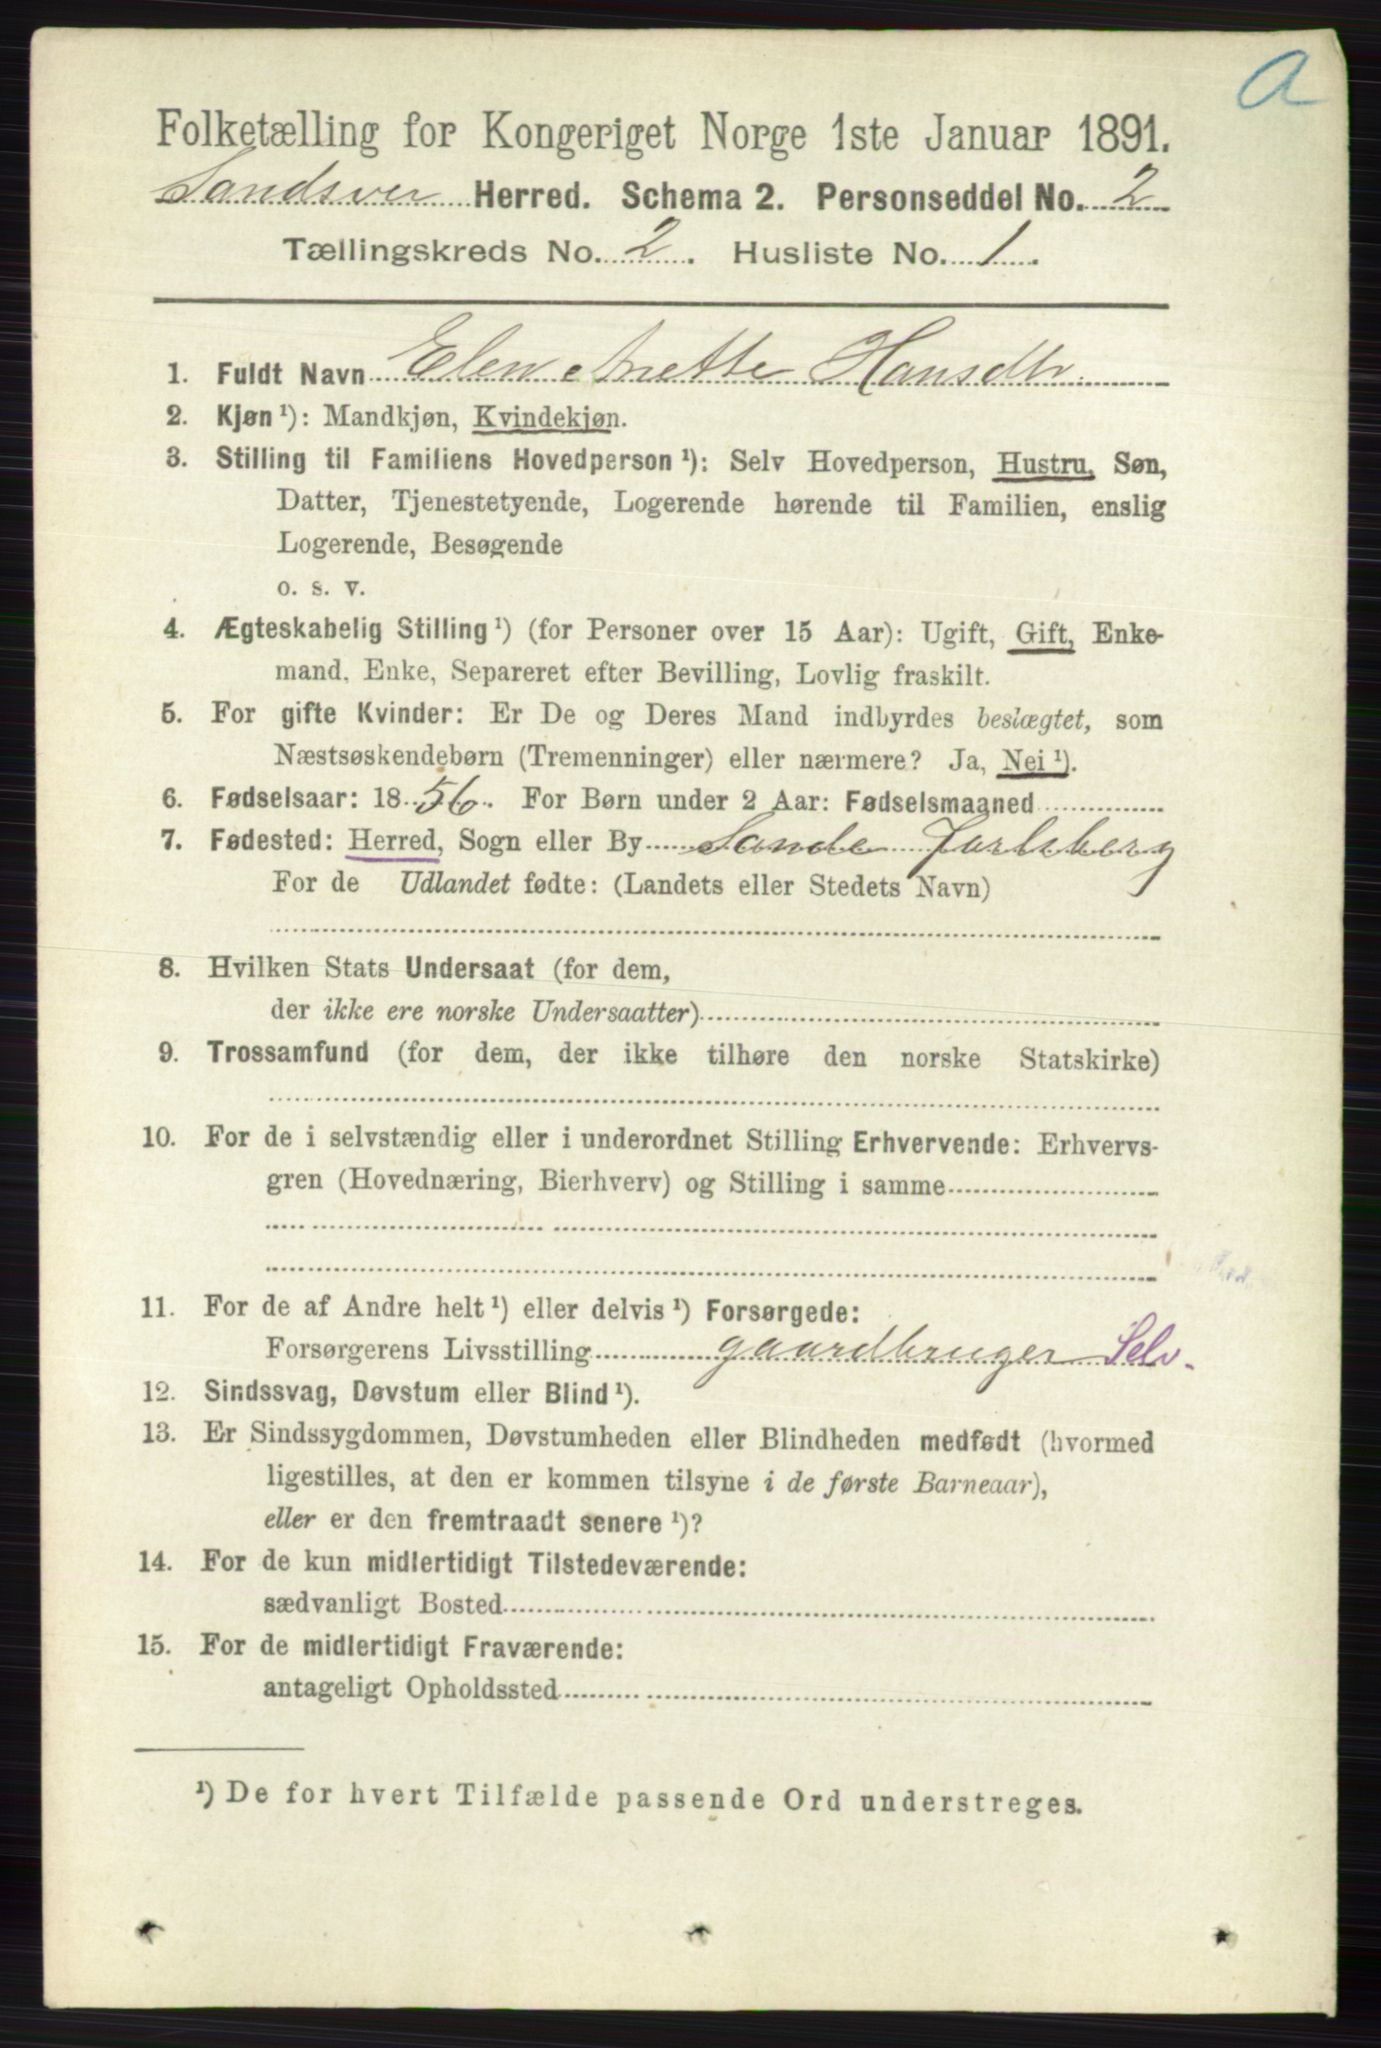 a
Folketælling for Kongeriget Norge 1ste Januar 1891.
Sandsver Herred. Schema 2. Personseddel No. 2
Tællingskreds No. 2. Husliste No. 1.
1. Fuldt Navn Elen Anette Hansdtr
2. Kjøn ¹): Mandkjøn, Kvindekjøn.
3. Stilling til Familiens Hovedperson ¹): Selv Hovedperson, Hustru, Søn,
Datter, Tjenestetyende, Logerende hørende til Familien, enslig
Logerende, Besøgende
o. s. v.
4. Ægteskabelig Stilling ¹) (for Personer over 15 Aar): Ugift, Gift, Enke-
mand, Enke, Separeret efter Bevilling, Lovlig fraskilt.
5. For gifte Kvinder: Er De og Deres Mand indbyrdes beslægtet, som
Næstsøskendebørn (Tremenninger) eller nærmere? Ja, Nei ¹).
6. Fødselsaar: 1856. For Børn under 2 Aar: Fødselsmaaned
7. Fødested: Herred, Sogn eller By Sande Jarlsberg
For de Udlandet fødte: (Landets eller Stedets Navn)
8. Hvilken Stats Undersaat (for dem,
der ikke ere norske Undersaatter)
9. Trossamfund (for dem, der ikke tilhøre den norske Statskirke)
10. For de i selvstændig eller i underordnet Stilling Erhvervende: Erhvervs-
gren (Hovednæring, Bierhverv) og Stilling i samme
11. For de af Andre helt ¹) eller delvis ¹) Forsørgede:
Forsørgerens Livsstilling gaardbruger Selv.
12. Sindssvag, Døvstum eller Blind ¹).
13. Er Sindssygdommen, Døvstumheden eller Blindheden medfødt (hvormed
ligestilles, at den er kommen tilsyne i de første Barneaar),
eller er den fremtraadt senere ¹)?
14. For de kun midlertidigt Tilstedeværende:
sædvanligt Bosted
15. For de midlertidigt Fraværende:
antageligt Opholdssted
¹) De for hvert Tilfælde passende Ord understreges.